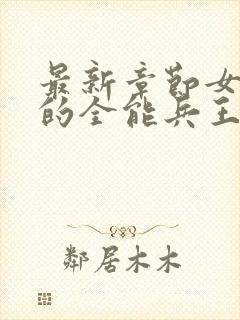 最新章节女
的全能兵王
鄰居木木